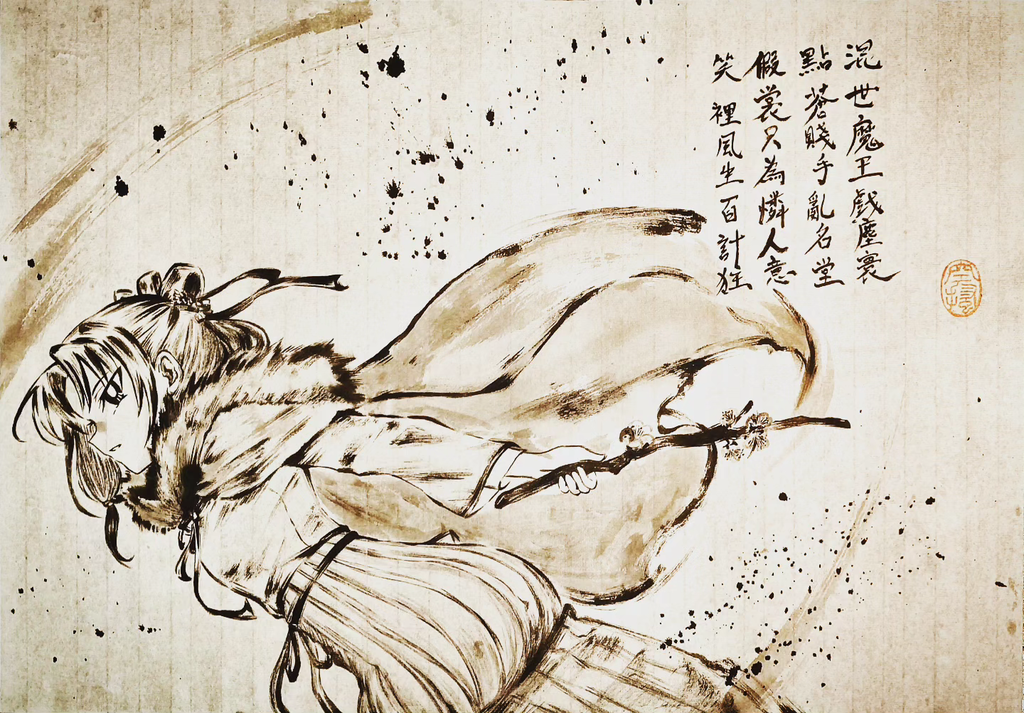 混世魔王戲塵寰
點蒼賤手亂名堂
假裳只為憐人意
笑裡風生百計狂